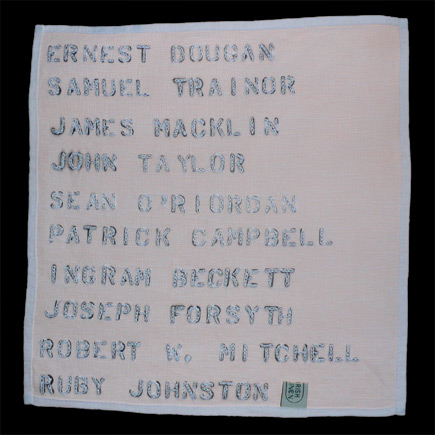 ERNEST DOUGAN
SAMUEL TRAINOR
JAMES MACKLIN
JOHN TAYLOR
SEAN O'RIORDAN
PATRICK CAMPBELL
INGRAM BECKETT
JOSEPH FORSYTH
ROBERT W. MITCHELL
RUBY JOHNSTON
IRISH
LINEN